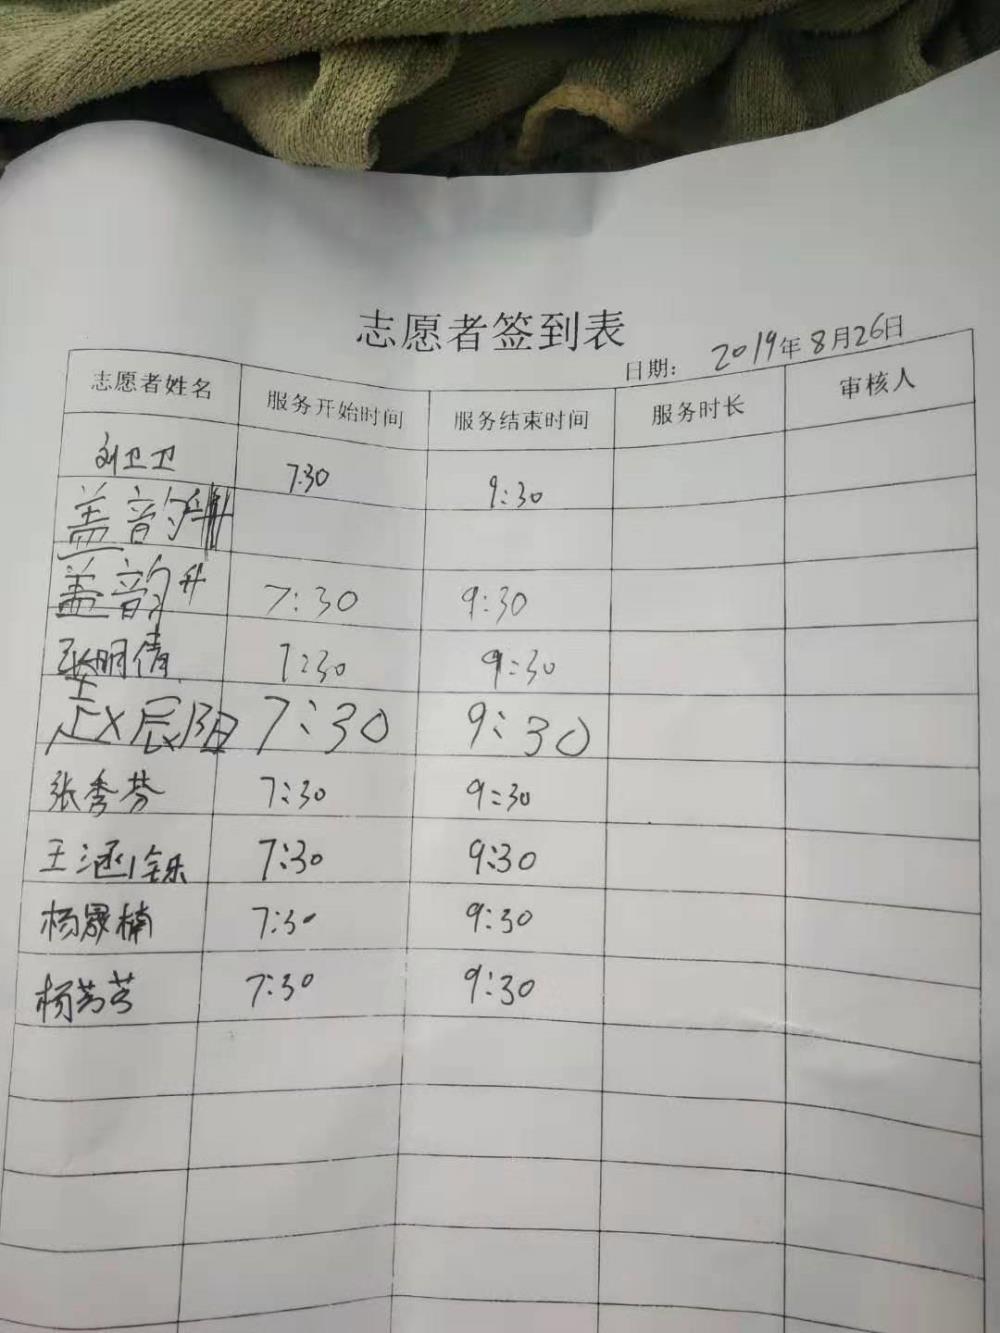 志愿者签到表
日期： 2019年8月26日
志愿者姓名 服务开始时间 服务结束时间 服务时长 审核人
刘卫卫 7:30 9:30
盖韵
盖韵升 7:30 9:30
张明倩 7:30 9:30
赵辰阳 7:30 9:30
张秀芬 7:30 9:30
王涵铄 7:30 9:30
杨晟楠 7:30 9:30
杨芳芳 7:30 9:30